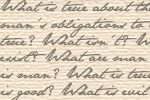 What is true about th
man's obligations to
true? What isn't? W
exist? What are man
is man? What is true
is good? What is evil